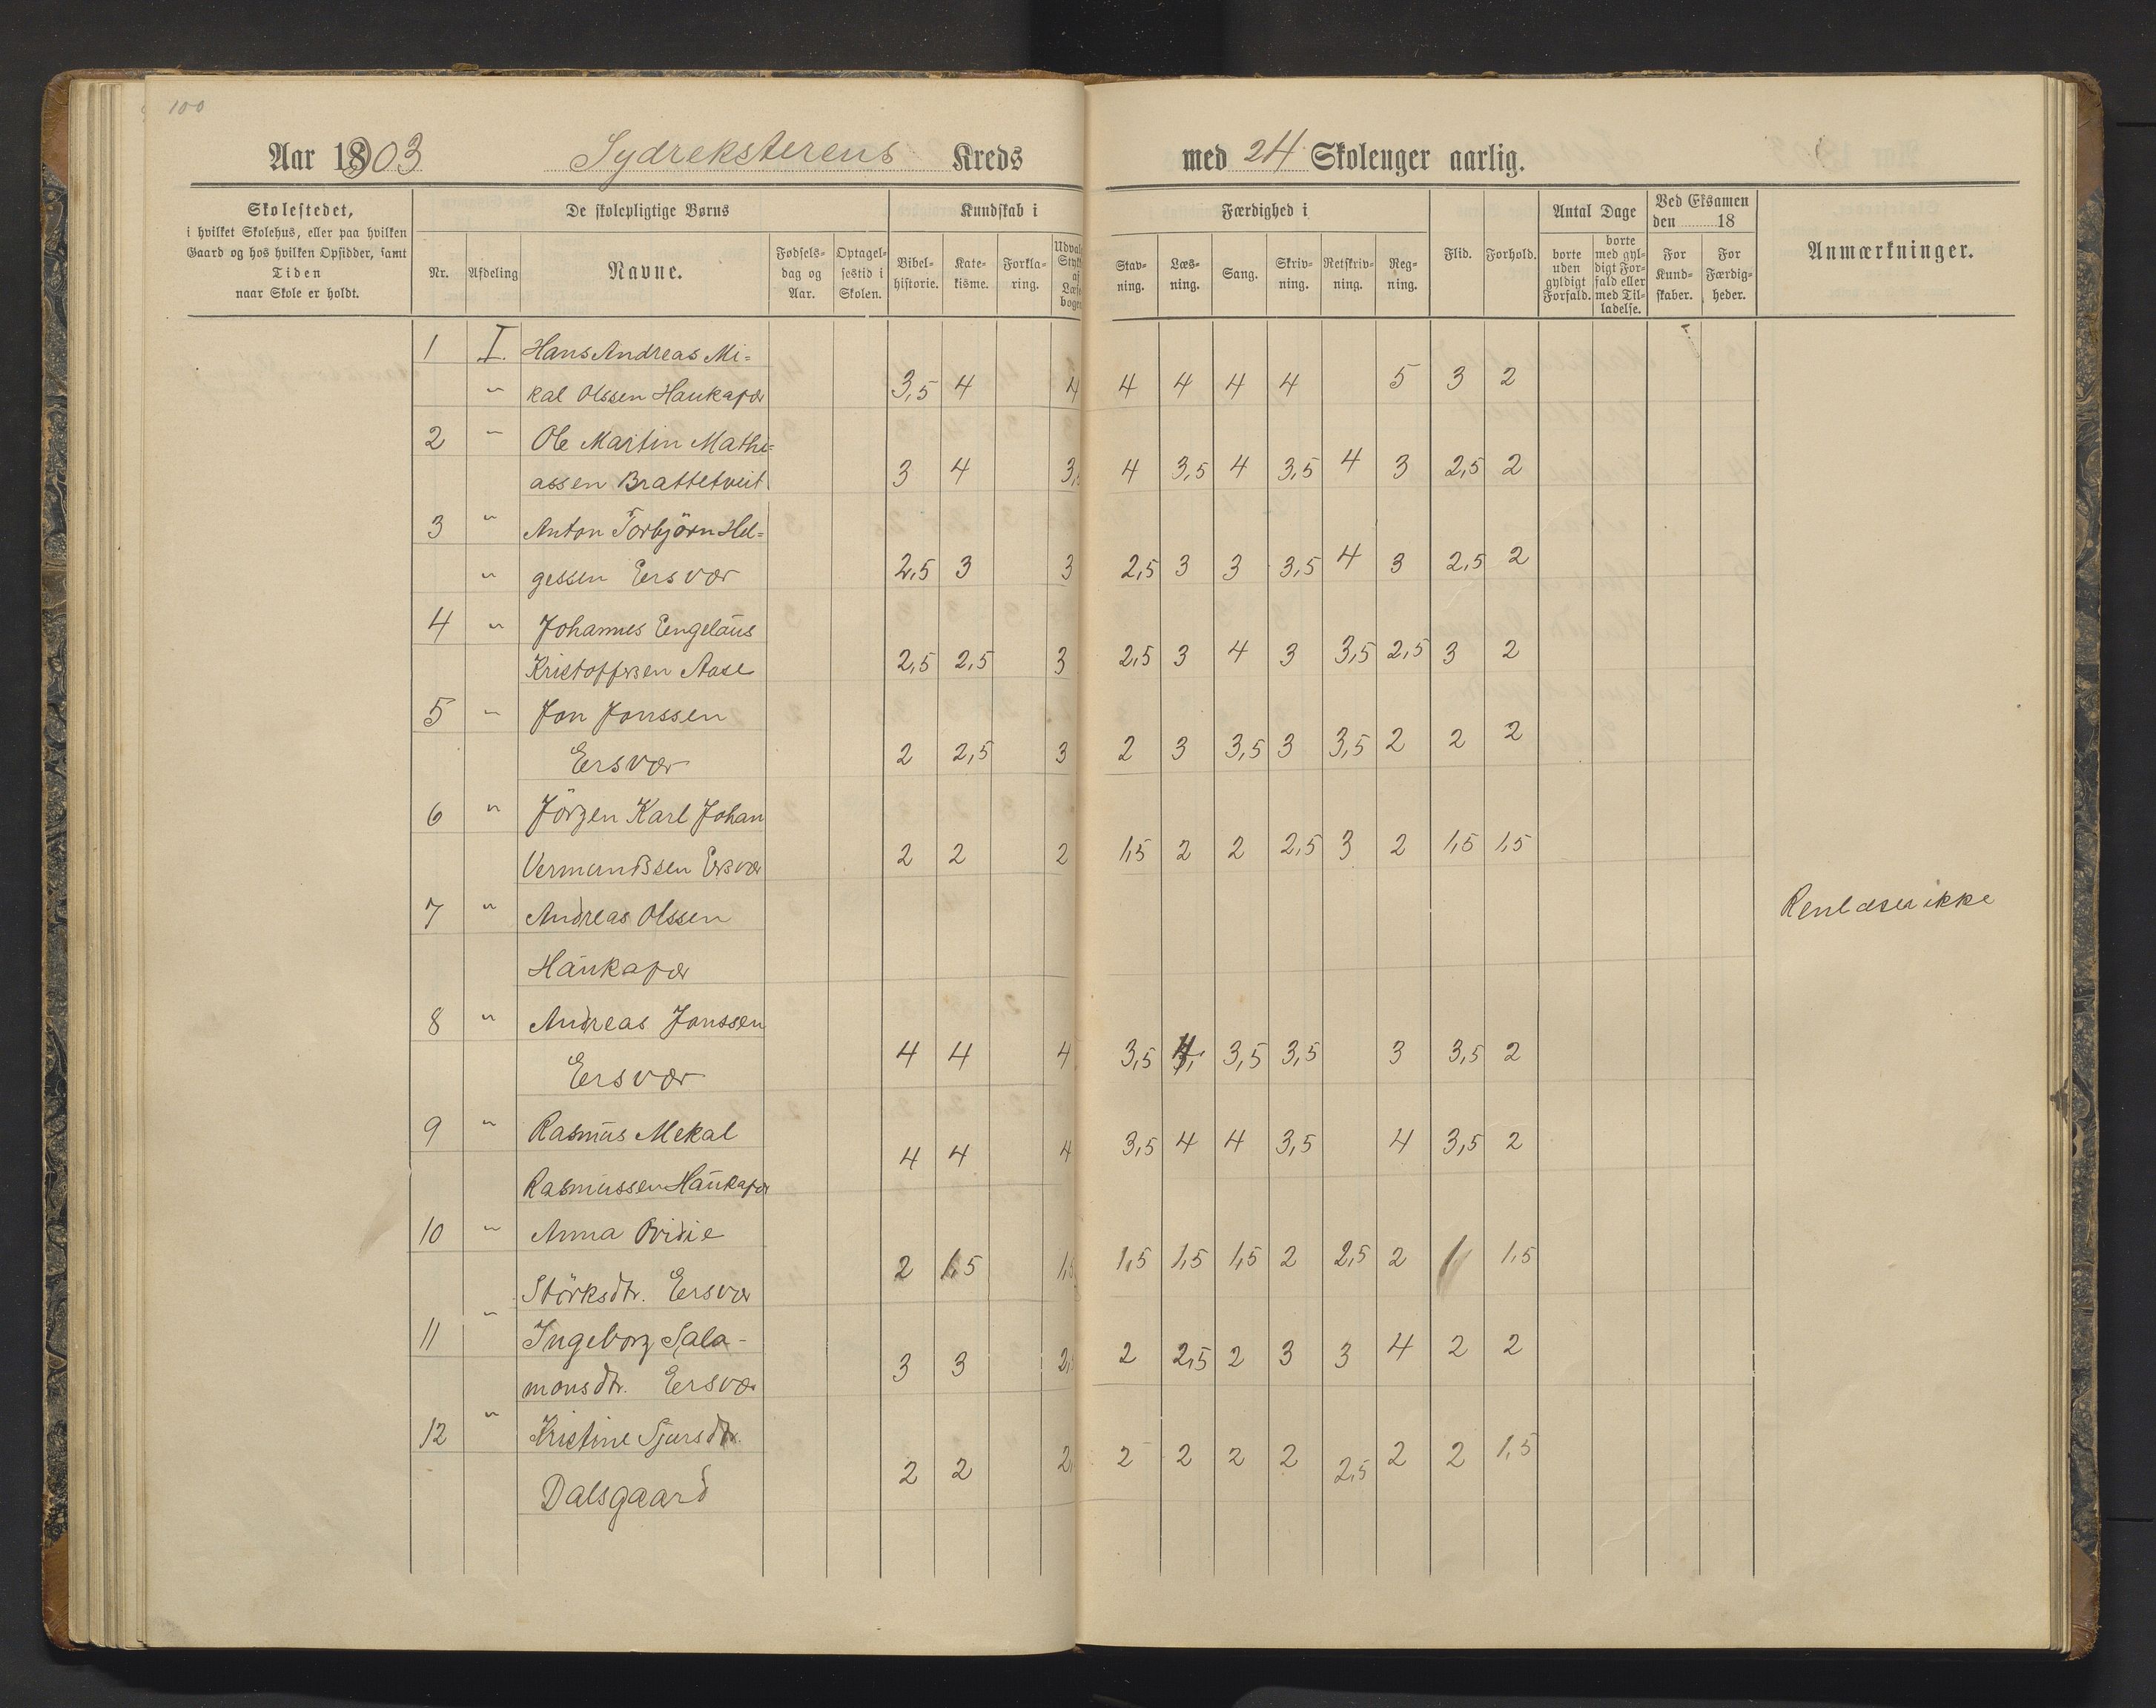 100
Aar 1903 Sydreksterens Kreds med 24 Skoleuger aarlig.
Skolestedet,
i hvilket Skolehus, eller paa hvilken
Gaard og hos hvilken Opsidder, samt
Tiden
naar Skole er holdt.
De skolepligtige Børns
Nr. Afdeling Navne. Fødsels-dag og Aar. Optagel-sestid i Skolen.
Kundskab i
Bibel-historie. Kate-kisme. Forkla-ring.
Færdighed i
Stav-ning. Læs-ning. Sang. Skriv-ning. Retskriv-ning. Reg-ning.
Flid. Forhold.
Antal Dage
borte uden gyldigt Forfald. borte med gyl-digt For-fald eller med Til-ladelse.
Ved Eksamen
den 18
For Kund-skaber. For Færdig-heder.
Anmærkninger.
1 I. Hans Andreas Mi-
" kal Olssen Haukapær 3,5 4 4 4 4 4 4 5 3 2
2 " Ole Martin Mathi-
assen Brattetveit 3 4 3,5 4 3,5 4 3,5 4 3 2,5 2
3 " Anton Torbjörn Hel-
" gessen Eersvær 2,5 3 3 2,5 3 3 3,5 4 3 2,5 2
4 " Johannes Engelaus
Kristoffersen Aase 2,5 2,5 3 2,5 3 4 3 3,5 2,5 3 2
5 " Jon Jonssen
Eersvær 2 2,5 3 2 3 3,5 3 3,5 2 2 2
6 " Jörgen Karl Johan
Vermundssen Ersvær 2 2 2 1,5 2 2 2,5 3 2 1,5 1,5
7 " Andreas Olssen Renlæser ikke
Haukapær
8 " Andreas Jonssen
Eersvær 4 4 4 3,5 4 3,5 3,5 3 3,5 2
9 " Rasmus Mekal
Rasmussen Haukapær 4 4 4 3,5 4 4 3,5 4 3,5 2
10 " Anna Ovidie
Störksdtr. Eersvær 2 1,5 1,5 1,5 1,5 1,5 2 2,5 2 1 1,5
11 " Ingeborg Sala-
monsdtr. Eersvær 3 3 2,5 2 2,5 2 3 3 4 2 2
12 " Kristine Sjursdtr.
Dalsgaard 2 2 2, 2 2 2 2 2,5 2 2 1,5